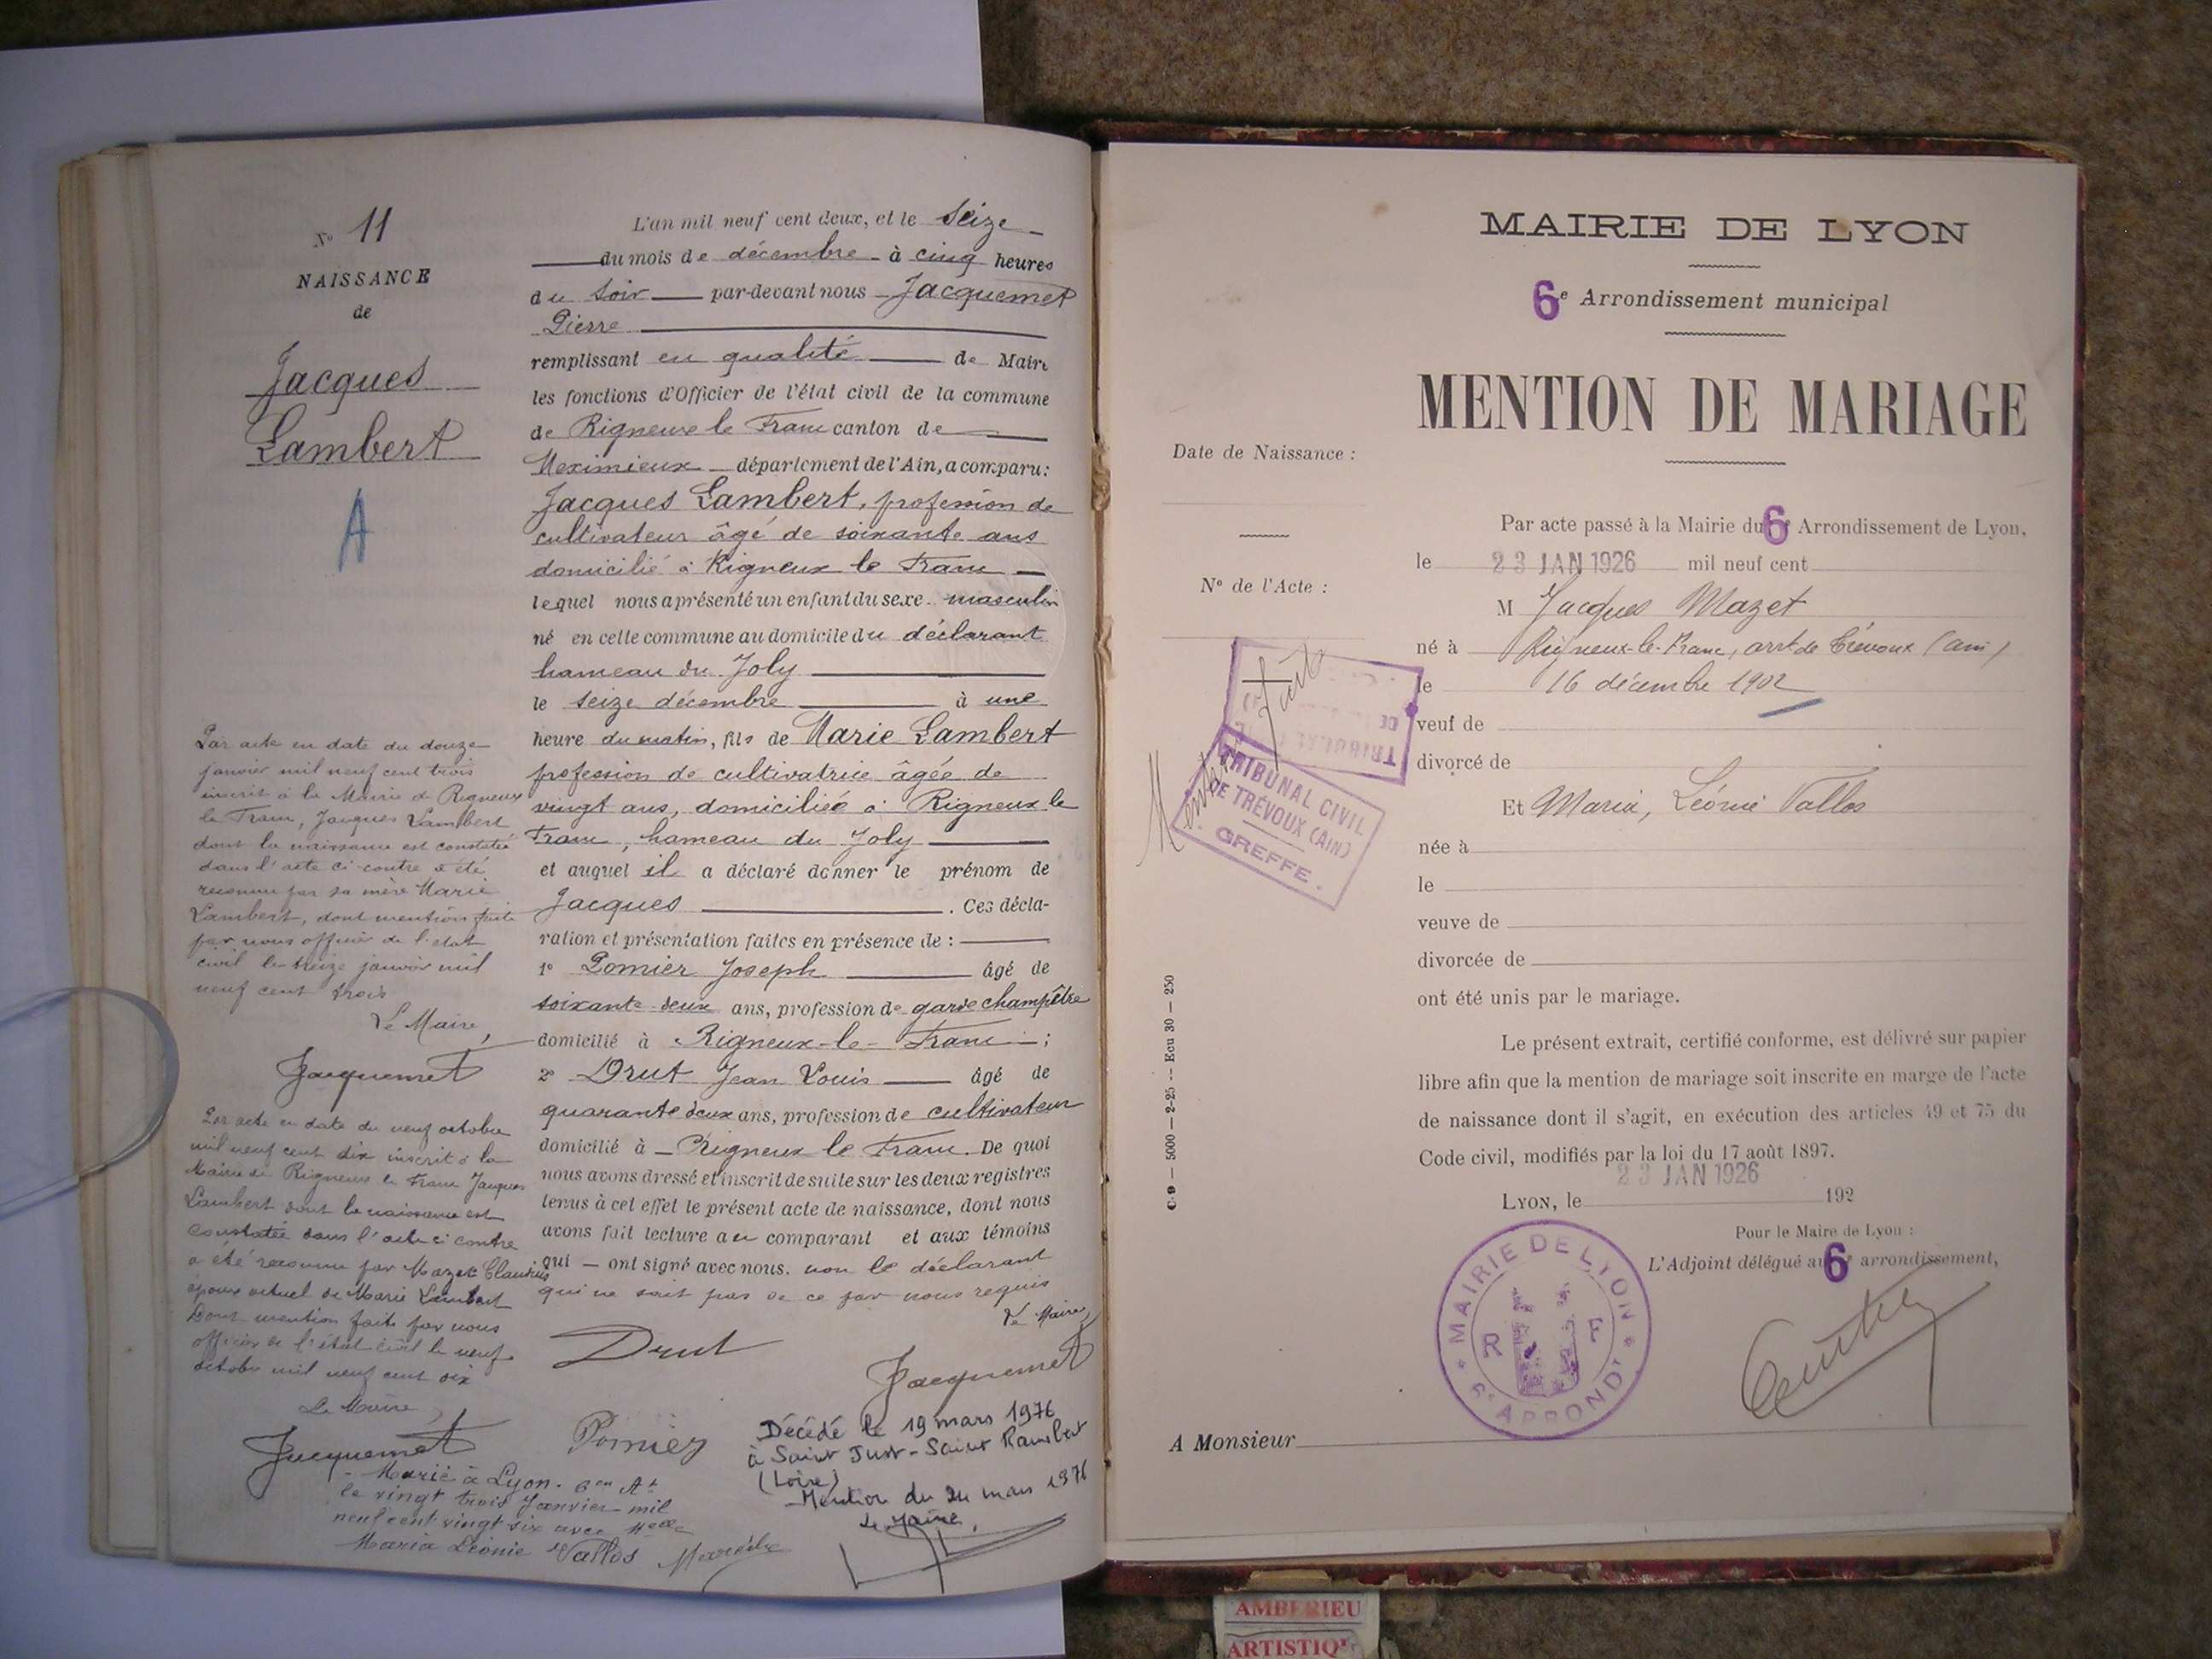 N° 11
NAISSANCE
de
Jacques
Lambert
A
Par acte en date du douze
janvier mil neuf cent trois
inscrit à la Mairie de Rigneux
le Franc, Jacques Lambert
dont la naissance est constatée
dans l'acte ci-contre a été
reconnu par sa mère Marie
Lambert, dont mention faite
par nous officier de l'état
civil le treize janvier mil
neuf cent trois
Le Maire,
Jacquemet
Par acte en date du neuf octobre
mil neuf cent dix inscrit à la
Mairie de Rigneux le Franc Jacques
Lambert dont la naissance est
constatée dans l'acte ci contre
a été reconnu par Mazet Claudius
époux actuel de Marie Lambert
Dont mention faite par nous
officier de l'état civil le neuf
octobre mil neuf cent dix
Le Maire
Jacquemet
Marié à Lyon. 6em At
le vingt trois Janvier mil
neuf cent vingt six avec Melle
Maria Léonie Vallos
L'an mil neuf cent deux, et le seize
du mois de décembre à cinq heures
du soir par-devant nous Jacquemet
Pierre
remplissant en qualité de Maire
les fonctions d'Officier de l'état civil de la commune
de Rigneux le Franc canton de
Meximieux département de l'Ain, a comparu:
Jacques Lambert, profession de
cultivateur âgé de soixante ans
domicilié à Rigneux le Franc
lequel nous a présenté un enfant du sexe masculin
né en cette commune au domicile du déclarant
hameau du Joly
le seize décembre à une
heure du matin, fils de Marie Lambert
profession de cultivatrice âgée de
vingt ans, domiciliée à Rigneux le
Franc, hameau du Joly
et auquel il a déclaré donner le prénom de
Jacques . Ces décla-
ration et présentation faites en présence de :
1° Pomier Joseph âgé de
soixante deux ans, profession de garde champêtre
domicilié à Rigneux-le-Franc ;
2° Drut Jean Louis âgé de
quarante deux ans, profession de cultivateur
domicilié à Rigneux le Franc. De quoi
nous avons dressé et inscrit de suite sur les deux registres
tenus à cet effet le présent acte de naissance, dont nous
avons fait lecture au comparant et aux témoins
qui — ont signé avec nous. non le déclarant
qui ne sait pas de ce par nous requis
Le Maire,
Drut
Jacquemet
Pomier
Décédé le 19 mars 1976
à Saint Just-Saint Rambert
(Loire)
Mention du 24 mars 1976
Le Maire,
MAIRIE DE LYON
6e Arrondissement municipal
MENTION DE MARIAGE
Date de Naissance :
N° de l'Acte :
Mention faite
TRIBUNAL CIVIL
DE TRÉVOUX (AIN)
GREFFE.
C. 9 — 5000 — 2-25 -- Ecu 30 — 250
Par acte passé à la Mairie du 6e Arrondissement de Lyon,
le 23 JAN 1926 mil neuf cent
M Jacques Mazet
né à Rigneux-le-Franc, arrt de Trévoux (ain)
le 16 décembre 1902
veuf de
divorcé de
Et Maria, Léonie Vallos
née à
le
veuve de
divorcée de
ont été unis par le mariage.
Le présent extrait, certifié conforme, est délivré sur papier
libre afin que la mention de mariage soit inscrite en marge de l'acte
de naissance dont il s'agit, en exécution des articles 49 et 75 du
Code civil, modifiés par la loi du 17 août 1897.
LYON, le 23 JAN 1926 192
Pour le Maire de Lyon :
L'Adjoint délégué au 6e arrondissement,
MAIRIE DE LYON
R F
6e ARRONDT
A Monsieur
AMBERIEU
ARTISTIQU